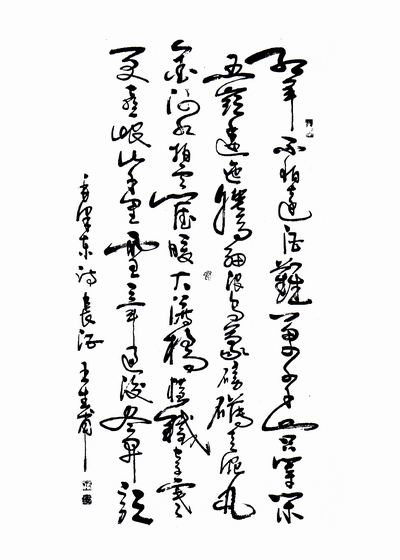 红军不怕遠征難萬水千山只等闲
五嶺逶迤腾细浪乌蒙磅礴走泥丸
金沙水拍云崖暖大渡橋横鐵索寒
更喜岷山千里雪三军过後尽开颜
毛泽东诗長征 王